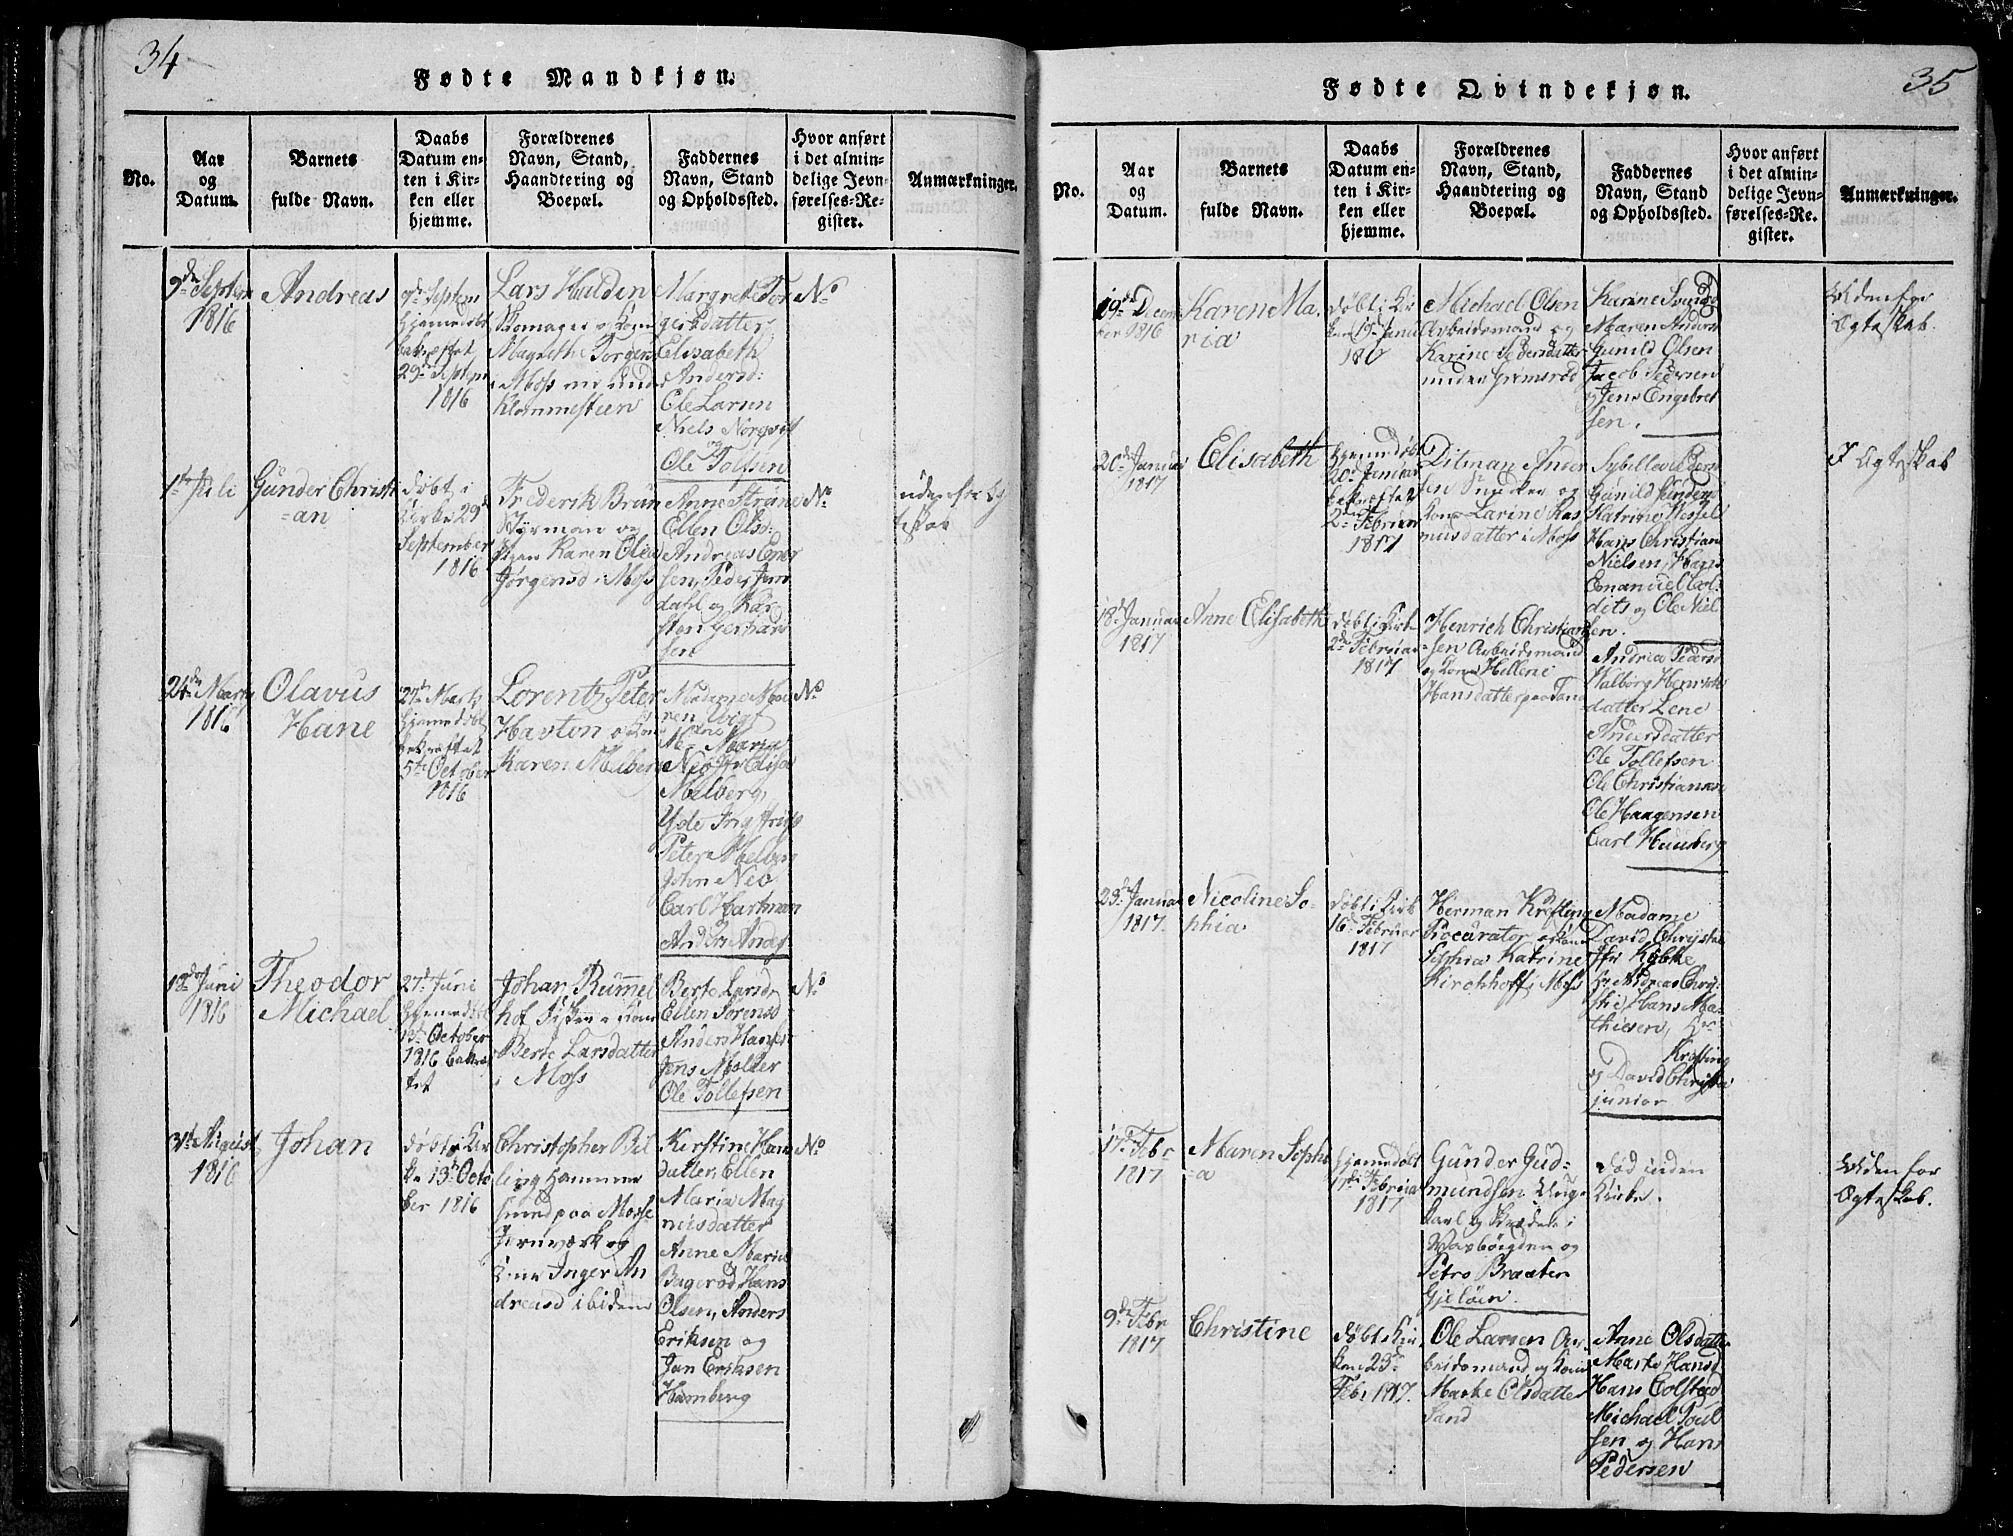 34
Fødte Mandkjøn.
No.
Aar
og
Datum.
Barnets
fulde Navn.
Daabs
Datum en-
ten i Kir-
ken eller
hjemme.
Forældrenes
Navn, Stand,
Haandtering og
Boepæl.
Faddernes
Navn, Stand
og Opholdssted.
Hvor anført
i det almin-
delige Jevn-
førelses-Re-
gister.
Anmærkninger.
9de Septem
1816
Andreas
9de Septem
hjemmedøbt
bekræftet
29de Septem
1816
Lars Halden
og Kone
i Moss
Klommesteen
Margrethe Tor
gersdatter
Elisabeth
Andersd:
Ole Larsen
Niels
og
Ole Tolfsen
No
1te Juli
Gunder Christi
=an
døbt i
Kirke 29de
September
1816
Frederik Brun
Styrman og
Pigen Karen Olea
Jørgensd i Moss
Anne
Ellen Olsd:
Andreas
sen, Peder
dahl og Kar
sten
sen
No
uden for Eg
teskab
24de Marty
1816
Olavus
Hane
27de Marty
hjemmedøbt
bekræftet
5te October
1816
Lorentz Peter
og Kone
Karen Melberg
Madame Ma
ren
Maria
Neo Jfr Elisa
Melberg,
Peter Melberg
John Neo
Carl Hartman
Anders
No
12de Juni
1816
Theodor
Michael
27de Juni
hjemmedøbt
13de October
1816 bekræf
tet
Johan Rummel
hof Fisker og Kone
Berte Larsdatter
i Moss
Berte Larsd
Ellen Sørensd
Anders Hansen
Jens Molder
Ole Tollefsen
No
31te August
1816
Johan
døbt i Kir
ke 13de Octo
ber 1816
Christopher Bil
ling Hammer
smed paa Mosse
Jernværk og
Kone Inger An
dreasd ibidem
Kirstine Hans
datter, Ellen
Maria Mag
nusdatter
Anne Marie
Bagerød Hans
Olsen, Anders
Eriksen og
Jan Eriksen
Hamberg
No
35
Fødte Qvindekjøn.
No.
Aar
og
Datum.
Barnets
fulde Navn.
Daabs
Datum en-
ten i Kir-
ken eller
hjemme.
Forældrenes
Navn, Stand,
Haandtering og
Boepæl.
Faddernes
Navn, Stand
og Opholdssted.
Hvor anført
i det almin-
delige Jevn-
førelses-Re-
gister.
Anmærkninger.
19de Decem
ber 1816
Karen Ma-
ria
døbt i Kir
ken 19de Janu
Michael Olsen
Arbeidsmand og
Karine Pedersdatter
under Grimsrød
Karine
Maren Andersd
Gunild Olsen
Jacob Pedersen
og Jens Engebret
sen.
Uden for
Egteskab.
20de Januar
1817
Elisabeth
hjemmedøbt
20de Januar
bekræftet
2den Februar
1817
Ditman Ander
sen Snedker og
Kone Larine Ras
musdatter i Moss
Sybille Pedersd
Gunild
Katrine
Hans Christian
Nielsen, Hans
Emanuel
og Ole Niel
sen.
I Egteskab
18de Januar
1817
Anne Elisabeth
døbt i Kirk
2den Februar
1817
Henrich Christian
sen Arbeidsmand
og Kone Hellene
Hansdatter paa
Andrea Pedersd
Walborg Henrik
datter Lene
Andersdatter
Ole Tollefsen
Ole Christiansen
Ole Haagensen
Carl
23de Januar
1817.
Nicoline So-
phia
døbt i Kirk
16de Februar
1817
Herman Krefting
Procurator og Kone
Sophia Katrine
Kirchhoff i Moss
Madame
David Chrystie
Jfr
Hr Andreas Chry-
stie, Hans Ma-
thiesen, Hr
Krefting
og David Chrystie
junior
17de Febr
1817
Maren Soph
=ia
hjemmedøbt
17de Februar
1817
Gunder Gud=
mundsen Unge
karl og Skrædder i
og
Petro Braaten
Gjeløen.
Død inden
Kirke.
Uden for
Egteskab.
9de Febr
1817
Christine
døbt i Kir-
ken 23de
Febr 1817.
Ole Larsen Ar-
beidsmand og Kone
Marte Olsdatter
Sand
Anne Olsdatter
Marte Hansd
Hans Colstad
Michael Poul
sen og Hans
Pedersen